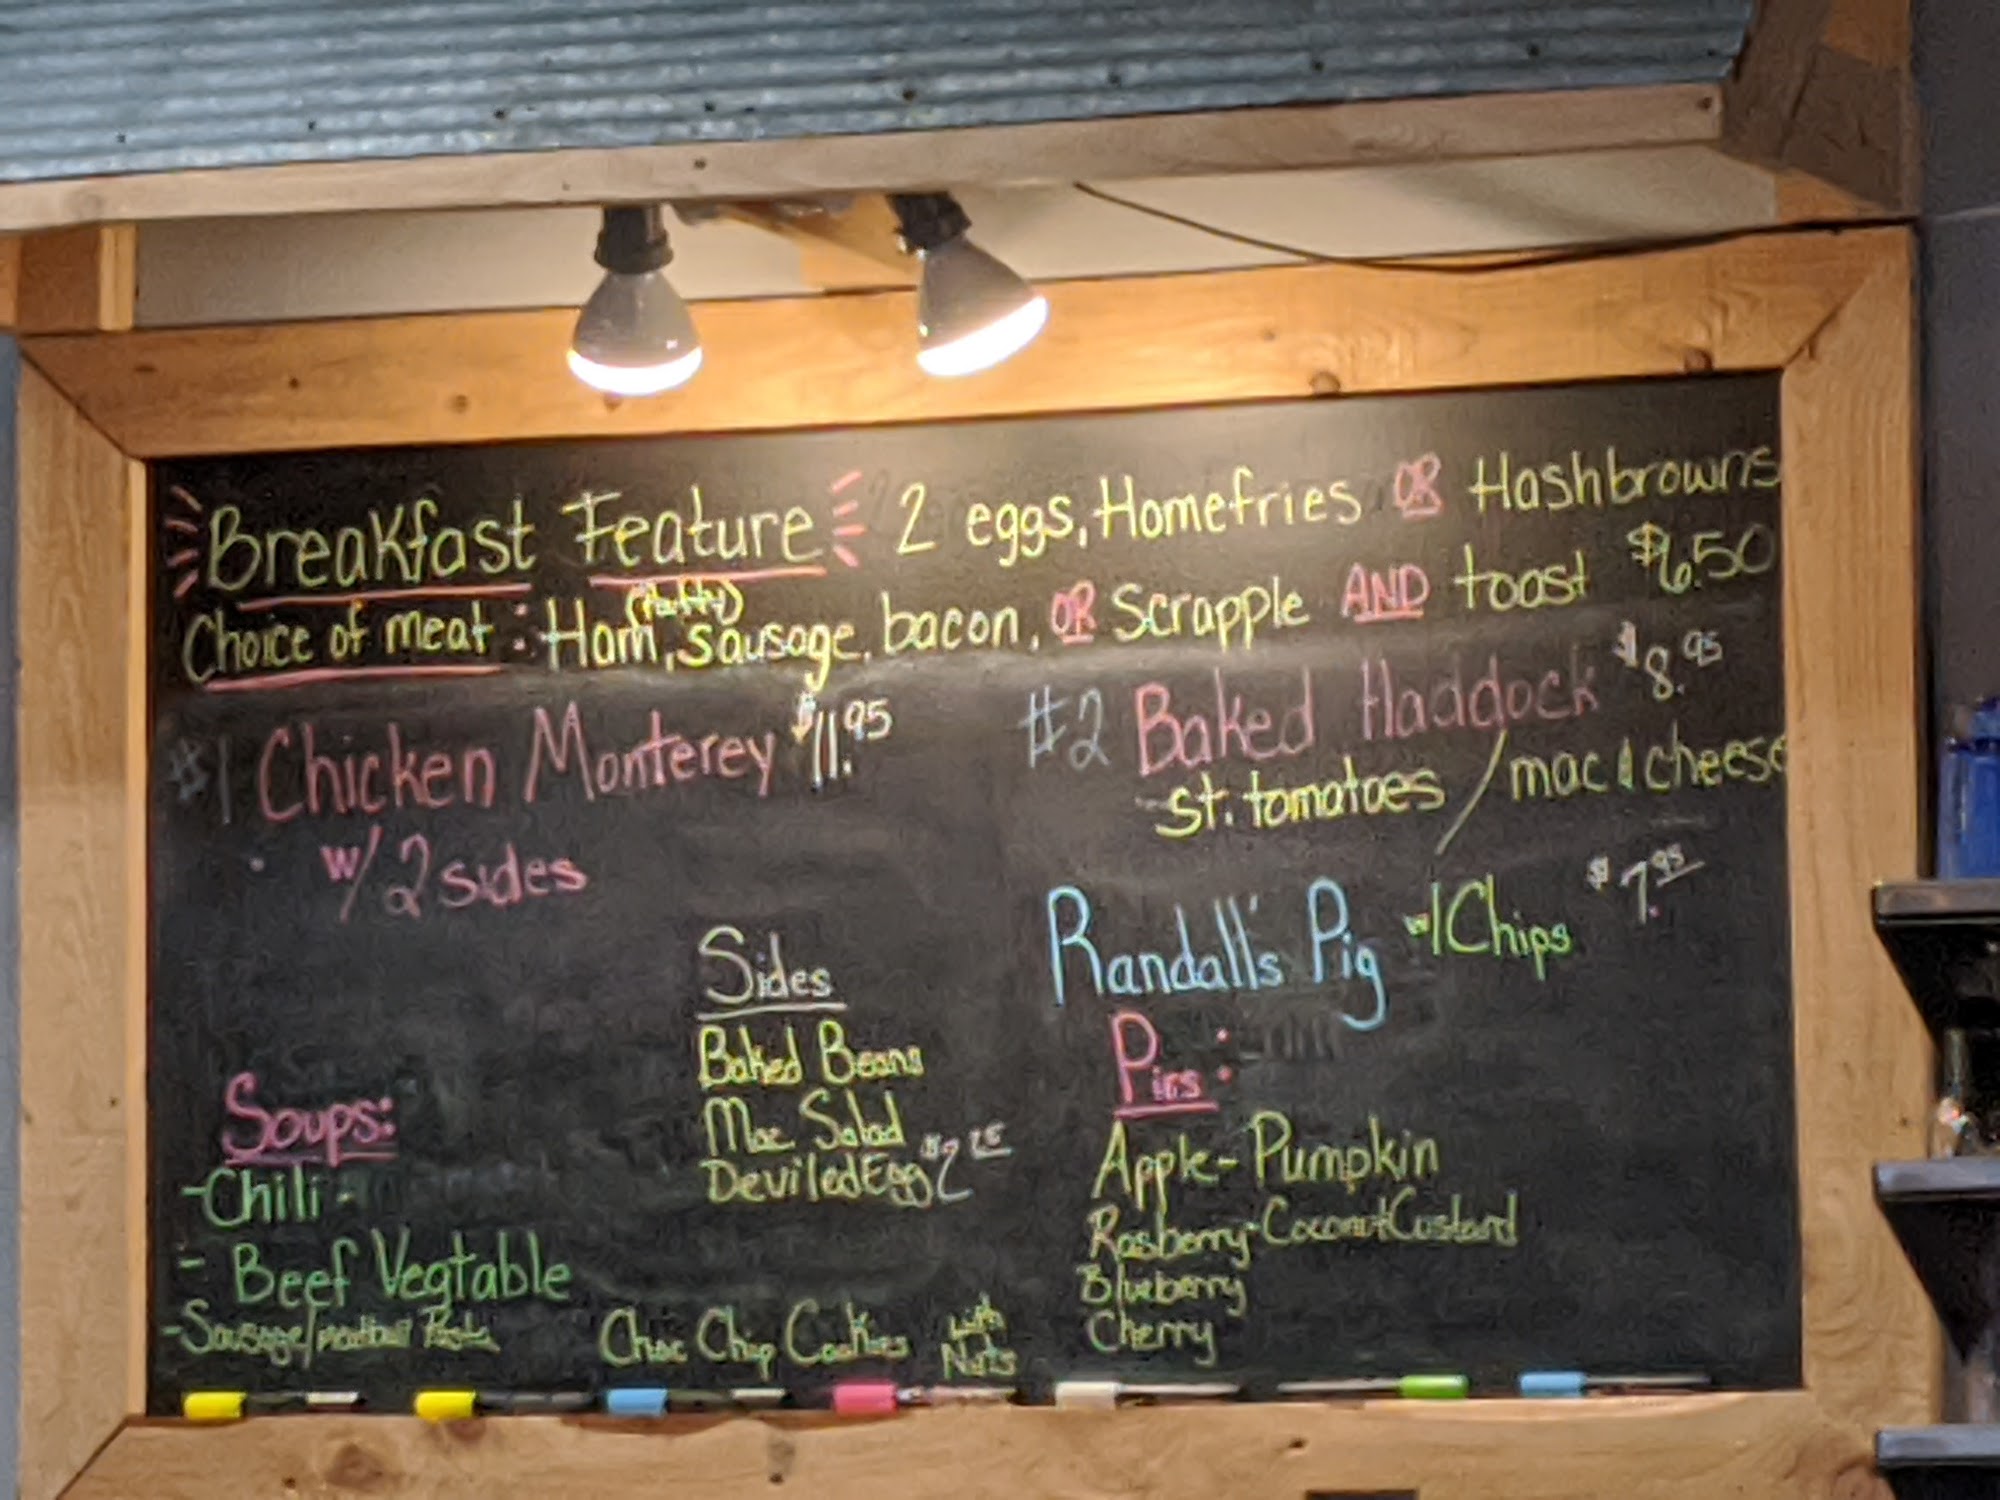 Breakfast Feature 2 eggs, Homefries OR Hashbrowns
(patty)
Choice of meat: Ham, sausage, bacon, OR Scrapple AND toast $6.50
#1 Chicken Monterey $11.95
w/ 2 sides
#2 Baked Haddock $8.95
st. tomatoes / mac & cheese
Randall's Pig w/ Chips $7.95
Sides
Baked Beans
Mac Salad
Deviled Egg $2.25
Soups:
-Chili-
- Beef Vegtable
-Sausage/meatball Pasta
Choc Chip Cookies with Nuts
Pies:
Apple - Pumpkin
Rasberry - Coconut Custard
Blueberry
Cherry